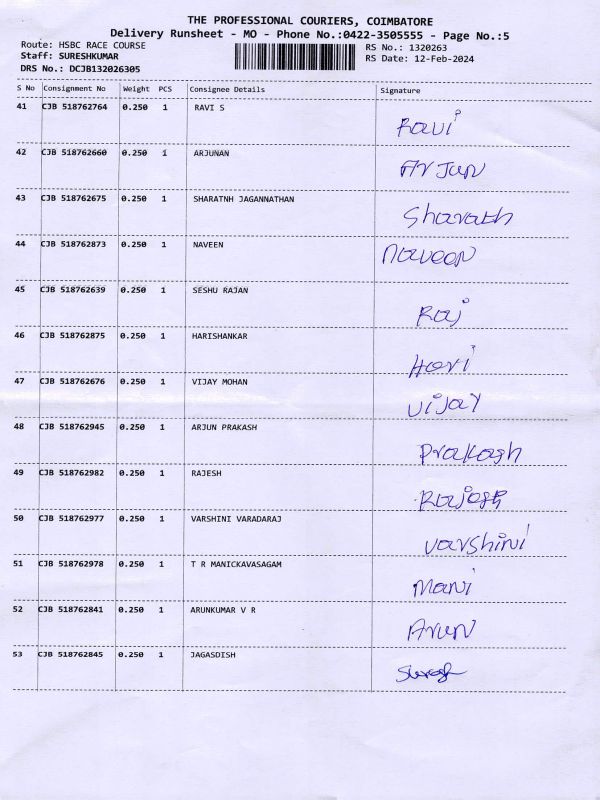 THE PROFESSIONAL COURIERS, COIMBATORE
Delivery Runsheet - MO - Phone No.:0422-3505555 - Page No.:5
Route: HSBC RACE COURSE RS No.: 1320263
Staff: SURESHKUMAR RS Date: 12-Feb-2024
DRS No.: DCJB132026305
S No Consignment No Weight PCS Consignee Details Signature
41 CJB 518762764 0.250 1 RAVI S
Ravi
42 CJB 518762660 0.250 1 ARJUNAN
Arjun
43 CJB 518762675 0.250 1 SHARATNH JAGANNATHAN
Sharath
44 CJB 518762873 0.250 1 NAVEEN
Naveen
45 CJB 518762639 0.250 1 SESHU RAJAN
Raj
46 CJB 518762875 0.250 1 HARISHANKAR
Hari
47 CJB 518762676 0.250 1 VIJAY MOHAN
Vijay
48 CJB 518762945 0.250 1 ARJUN PRAKASH
Prakash
49 CJB 518762982 0.250 1 RAJESH
Rajesh
50 CJB 518762977 0.250 1 VARSHINI VARADARAJ
Varshini
51 CJB 518762978 0.250 1 T R MANICKAVASAGAM
Mani
52 CJB 518762841 0.250 1 ARUNKUMAR V R
Arun
53 CJB 518762845 0.250 1 JAGASDISH